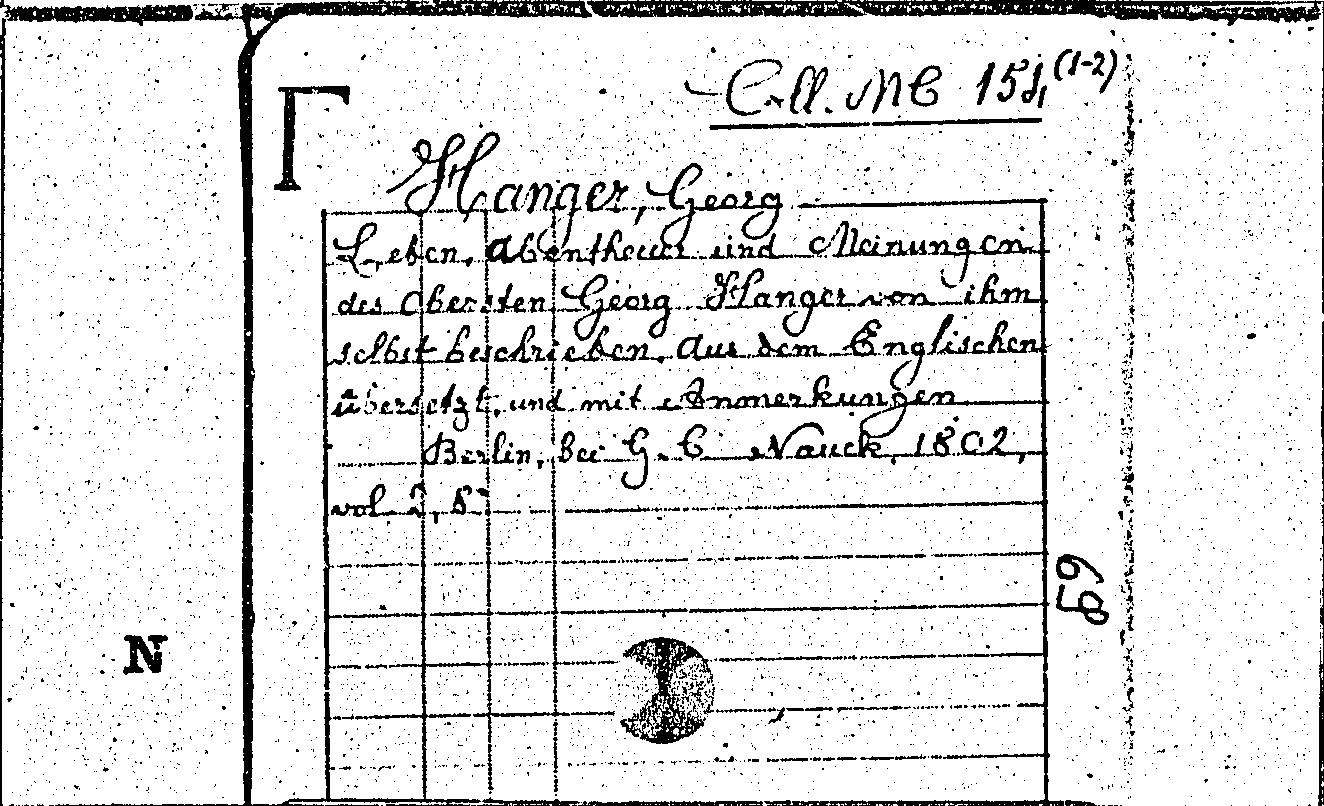 Coll. MC 151, (1-2)
Γ
Hanger, Georg
Leben, Abentheuer und Meinungen
des Obersten Georg Hanger von ihm
selbst beschrieben. Aus dem Englischen
übersetzt, und mit Anmerkungen
Berlin, bei G. C. Nauck, 1802,
vol 2, 8°
59
N